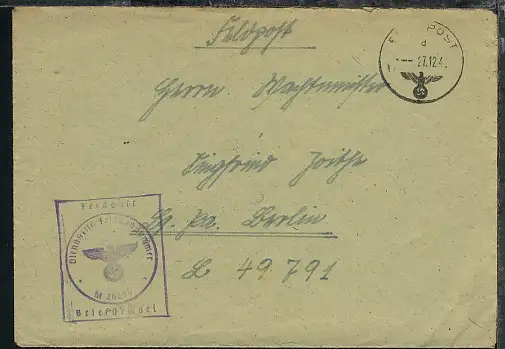 Feldpost
FELDPOST
d
27.12.4
Herrn Wachtmeister
Siegfried
Berlin
L 49791
Feldpost
Dienststelle Feldpostnummer
M
Briefstempel